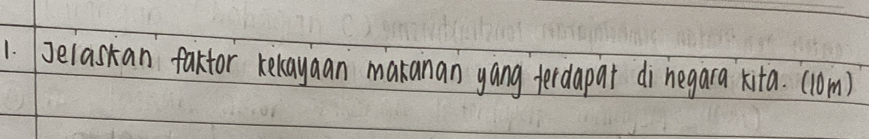 1. Jelaskan faktor kekayaan makanan yang terdapat di negara kita. (10m)